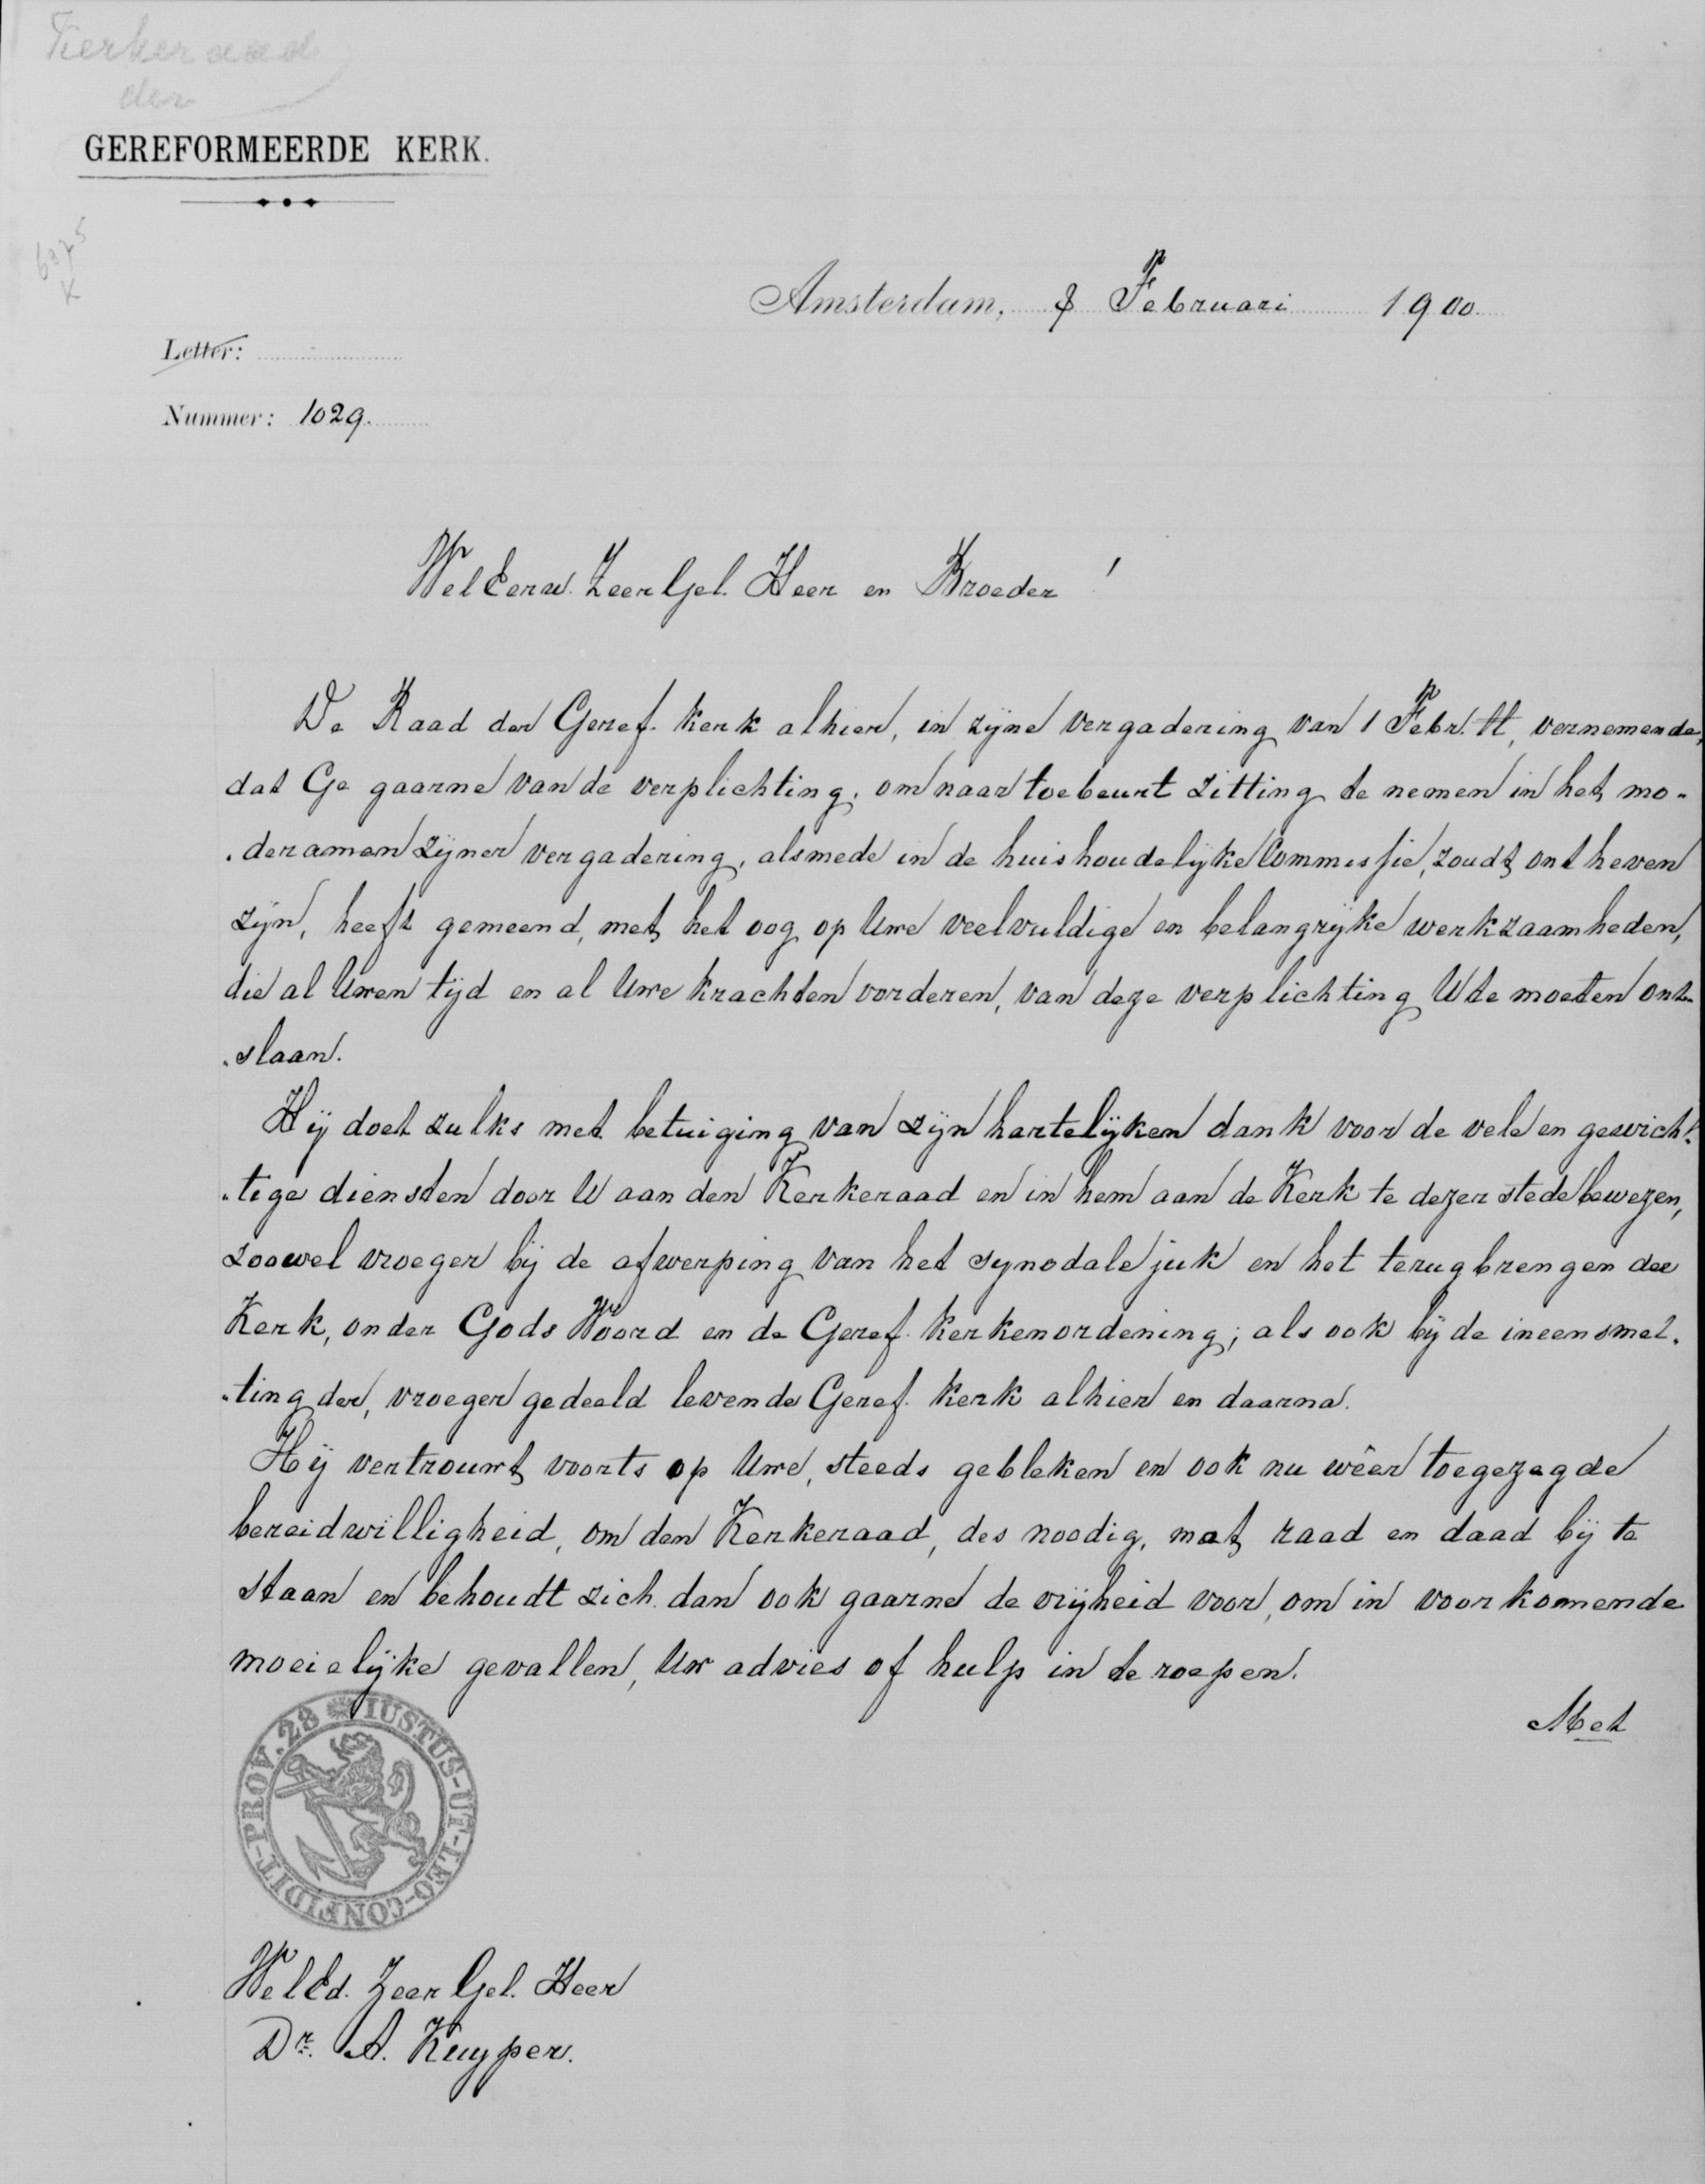 Kerkeraad
der
GEREFORMEERDE KERK.
6975
K
Amsterdam, 8 Februari 1900.
Letter:
Nummer: 1029.
WelEerw. ZeerGel. Heer en Broeder!
De Raad der Geref. kerk alhier, in zijne vergadering van 1 Febr. ll, vernemende,
dat Ge gaarne van de verplichting, om naar toebeurt zitting te nemen in het mo-
-deramen zijner vergadering, alsmede in de huishoudelijke Commissie, zoudt ontheven
zijn, heeft gemeend, met het oog op Uwe veelvuldige en belangrijke werkzaamheden,
die al Uwen tijd en al Uwe krachten vorderen, van deze verplichting U te moeten ont-
-slaan.
Hij doet zulks met betuiging van zijn hartelijken dank voor de vele en gewich-
-tige diensten door U aan den Kerkeraad en in hem aan de Kerk te dezer stede bewezen,
zoowel vroeger bij de afwerping van het synodale juk en het terugbrengen der
Kerk, onder Gods Woord en de Geref. kerkenordening; als ook bij de ineensmel-
-ting der, vroeger gedeeld levende Geref. kerk alhier en daarna.
Hij vertrouwt voorts op Uwe, steeds gebleken en ook nu wêer toegezegde
bereidwilligheid, om den Kerkeraad, des noodig, met raad en daad bij te
staan en behoudt zich dan ook gaarne de vrijheid voor, om in voorkomende
moeielijke gevallen, Uw advies of hulp in te roepen.
Met
IUSTUS-UT-LEO-CONFIDIT-PROV. 28
WelEd. ZeerGel. Heer
Dr. A. Kuyper.